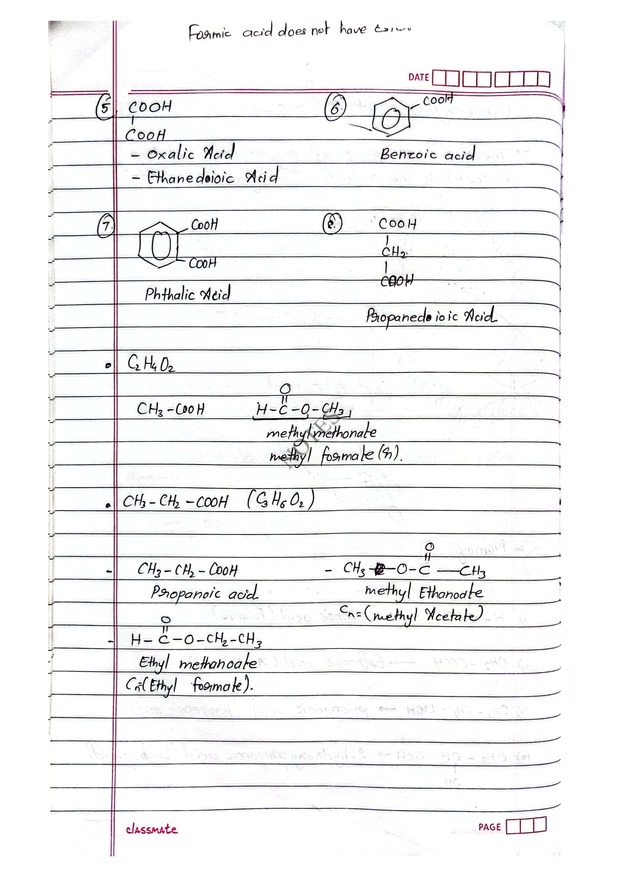 Formic acid does not have
DATE
5. COOH
COOH
- Oxalic Acid
- Ethanedoioic Acid
6. COOH
Benzoic acid
7. COOH
COOH
Phthalic Acid
8. COOH
CH2
COOH
Propanedoioic Acid
• C2H4O2
CH3-COOH
O
H-C-O-CH3
methylmethonate
methyl formate (n).
NOTES
• CH3-CH2-COOH (C3H6O2)
- CH3-CH2-COOH
Propanoic acid
O
- CH3-O-C-CH3
methyl Ethanoate
Cn=(methyl Acetate)
O
- H-C-O-CH2-CH3
Ethyl methanoate
Cn=(Ethyl formate).
classmate
PAGE